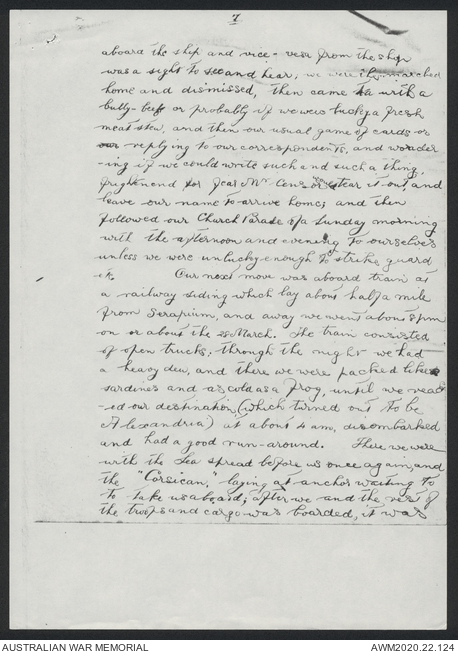 7
aboard the ship and vice-versa from the ship
was a sight to see and hear; we were then marched
home and dismissed, then came tea with a
bully-beef or probably if we were lucky a fresh
meat stew, and then our usual game of cards or
our replying to our correspondents, and wonder
-ing if we could write such and such a thing,
frightened for fear Mr Cens or tear it out and
leave our name to arrive home; and then
followed our Church Parade of a Sunday morning
with the afternoon and evening to ourselves
unless we were unlucky enough to strike guard
etc. Our next move was aboard train at
a railway siding which lay about half a mile
from Serapium, and away we went about 8 pm
on or about the 28 March. The train consisted
of open trucks, through the night we had
a heavy dew, and there we were packed like
sardines and as cold as a frog, until we reach
-ed our destination (which turned out to be
Alexandria) at about 4 am, disembarked
and had a good run-around. There we were
with the Sea spread before us once again, and
the "Corsican," laying at anchor waiting to
to take us aboard; after we and the rest of
the troops and cargo was boarded, it was
AUSTRALIAN WAR MEMORIAL
AWM2020.22.124